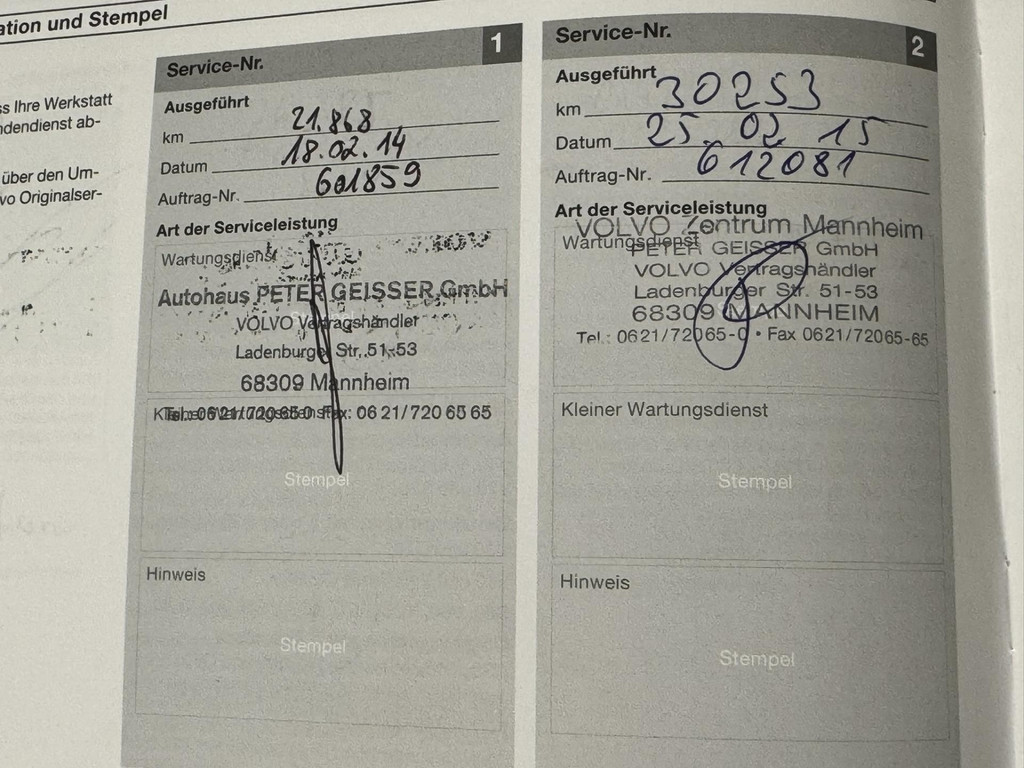 ation und Stempel
ss Ihre Werkstatt
ndendienst ab-
über den Um-
vo Originalser-
Service-Nr. 1
Ausgeführt
km 21.868
Datum 18.02.14
Auftrag-Nr. 601859
Art der Serviceleistung
Wartungsdienst
Autohaus PETER GEISSER GmbH
VOLVO Vertragshändler
Ladenburger Str. 51-53
68309 Mannheim
Tel.: 06 21/720 65 0 Fax: 06 21/720 65 65
Stempel
Hinweis
Stempel
Service-Nr. 2
Ausgeführt
km 30253
Datum 25.02.15
Auftrag-Nr. 612081
Art der Serviceleistung
VOLVO Zentrum Mannheim
Wartungsdienst
PETER GEISSER GmbH
VOLVO Vertragshändler
Ladenburger Str. 51-53
68309 MANNHEIM
Tel.: 0621/72065-0 • Fax 0621/72065-65
Kleiner Wartungsdienst
Stempel
Hinweis
Stempel